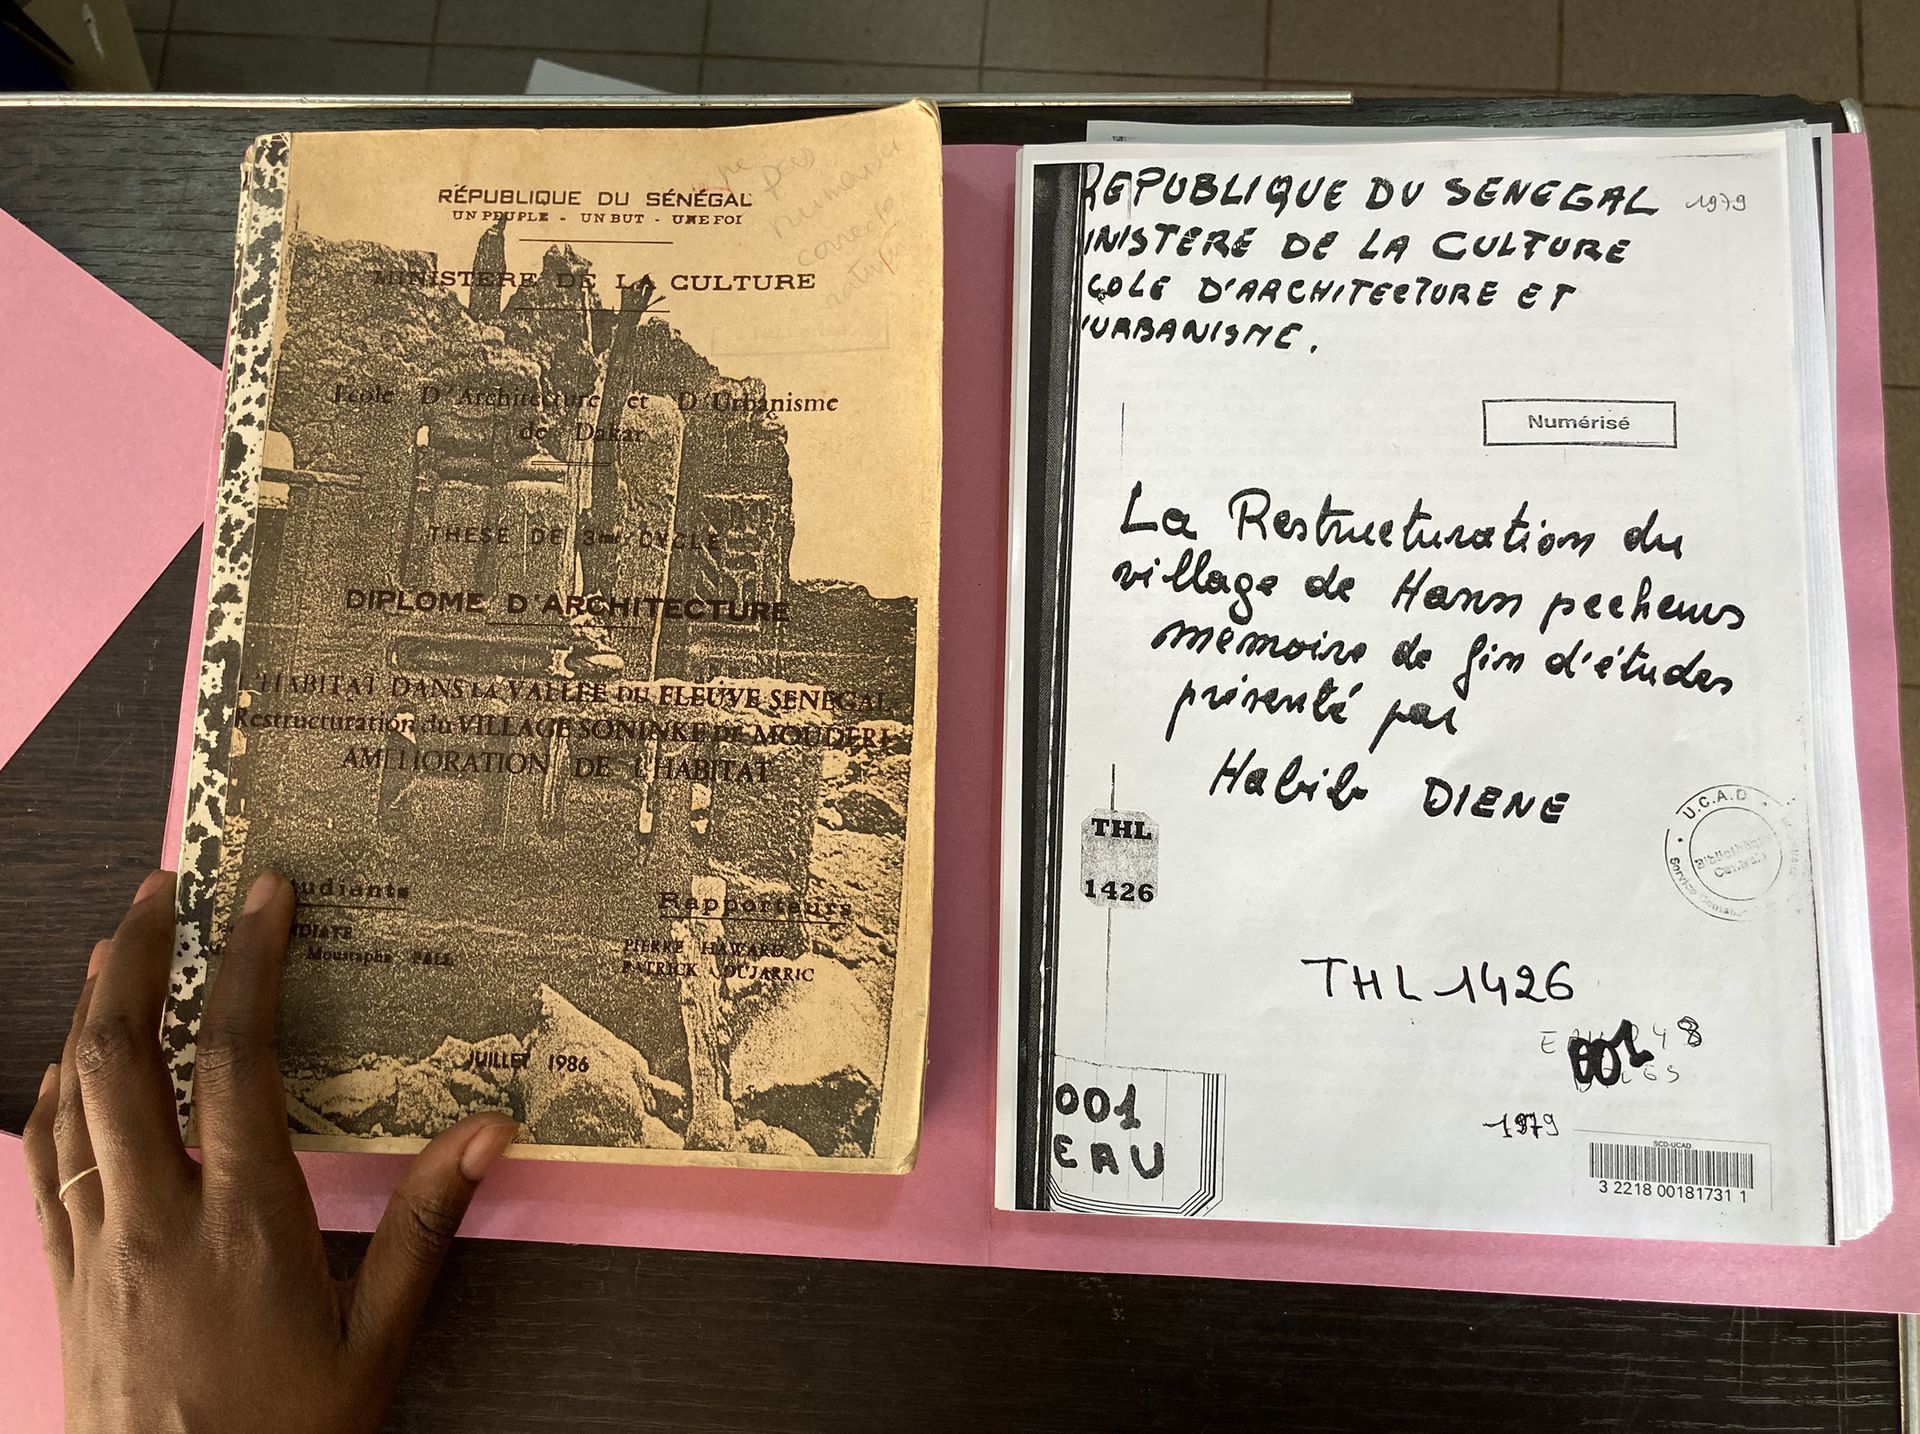 RÉPUBLIQUE DU SÉNÉGAL
UN PEUPLE - UN BUT - UNE FOI
MINISTERE DE LA CULTURE
Ecole D'Architecture et D'Urbanisme
de Dakar
THESE DE 3me CYCLE
DIPLOME D'ARCHITECTURE
L'HABITAT DANS LA VALLEE DU FLEUVE SENEGAL
Restructuration du VILLAGE SONINKE DE MOUDERI
AMELIORATION DE L'HABITAT
tudiants
Rapporteurs
NDIATE
Moustapha FALL
PIERRE HAWARD
PATRICK DUJARRIC
JUILLET 1986
REPUBLIQUE DU SENEGAL 1979
INISTERE DE LA CULTURE
COLE D'ARCHITECTURE ET
'URBANISME.
Numérisé
La Restructuration du
village de Hann pecheurs
memoire de fin d'études
présenté par
Habib DIENE
U.C.A.D
Bibliothèque
THL
1426
THL 1426
001
001
EAU
1979
SCD-UCAD
3 2218 00181731 1